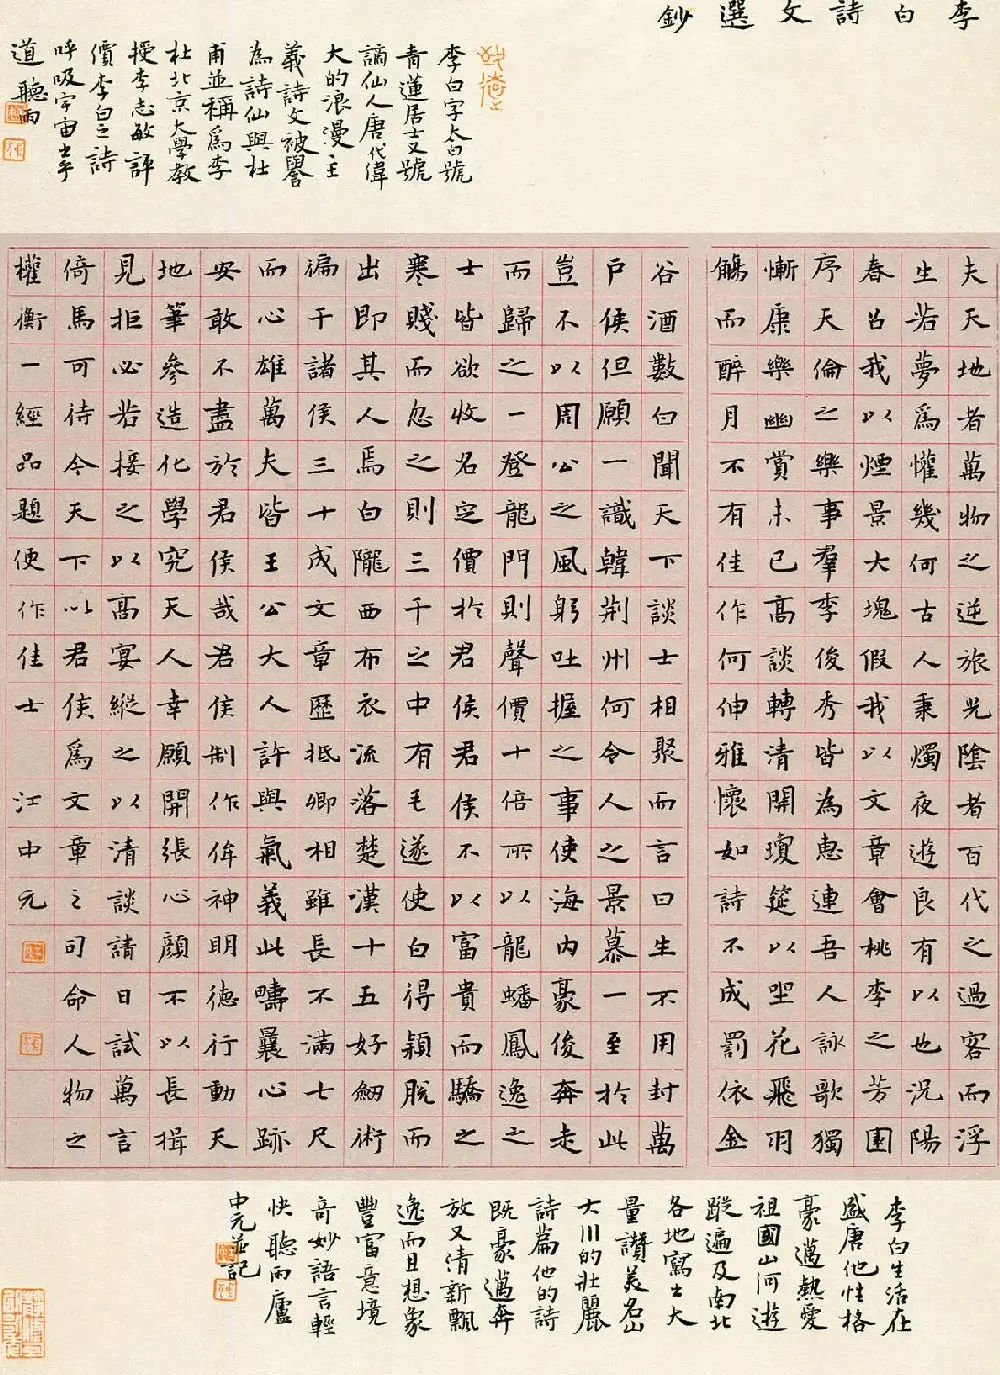 李白詩文選鈔
李白字太白號
青蓮居士又號
謫仙人唐代偉
大的浪漫主
義詩文被譽
為詩仙與杜
甫並稱為李
杜北京大學教
授李志敏評
價李白之詩
呼吸宇宙出乎
道 聽雨
夫天地者萬物之逆旅光陰者百代之過客而浮
生若夢爲懽幾何古人秉燭夜遊良有以也況陽
春召我以煙景大塊假我以文章會桃李之芳園
序天倫之樂事羣季俊秀皆為惠連吾人詠歌獨
慚康樂幽賞未已高談轉清開瓊筵以坐花飛羽
觴而醉月不有佳作何伸雅懷如詩不成罰依金
谷酒數白聞天下談士相聚而言曰生不用封萬
戶侯但願一識韓荊州何令人之景慕一至於此
豈不以周公之風躬吐握之事使海內豪俊奔走
而歸之一登龍門則聲價十倍所以龍蟠鳳逸之
士皆欲收名定價於君侯君侯不以富貴而驕之
寒賤而忽之則三千之中有毛遂使白得穎脫而
出即其人焉白隴西布衣流落楚漢十五好劒術
徧干諸侯三十成文章歷抵卿相雖長不滿七尺
而心雄萬夫皆王公大人許與氣義此疇曩心跡
安敢不盡於君侯哉君侯制作侔神明德行動天
地筆參造化學究天人幸願開張心顔不以長揖
見拒必若接之以高宴縱之以清談請日試萬言
倚馬可待今天下以君侯爲文章之司命人物之
權衡一經品題便作佳士 江中元
李白生活在
盛唐他性格
豪邁熱愛
祖國山河遊
蹤遍及南北
各地寫出大
量讚美名山
大川的壯麗
詩篇他的詩
既豪邁奔
放又清新飄
逸而且想象
豐富意境
奇妙語言輕
快聽雨廬
中元並記